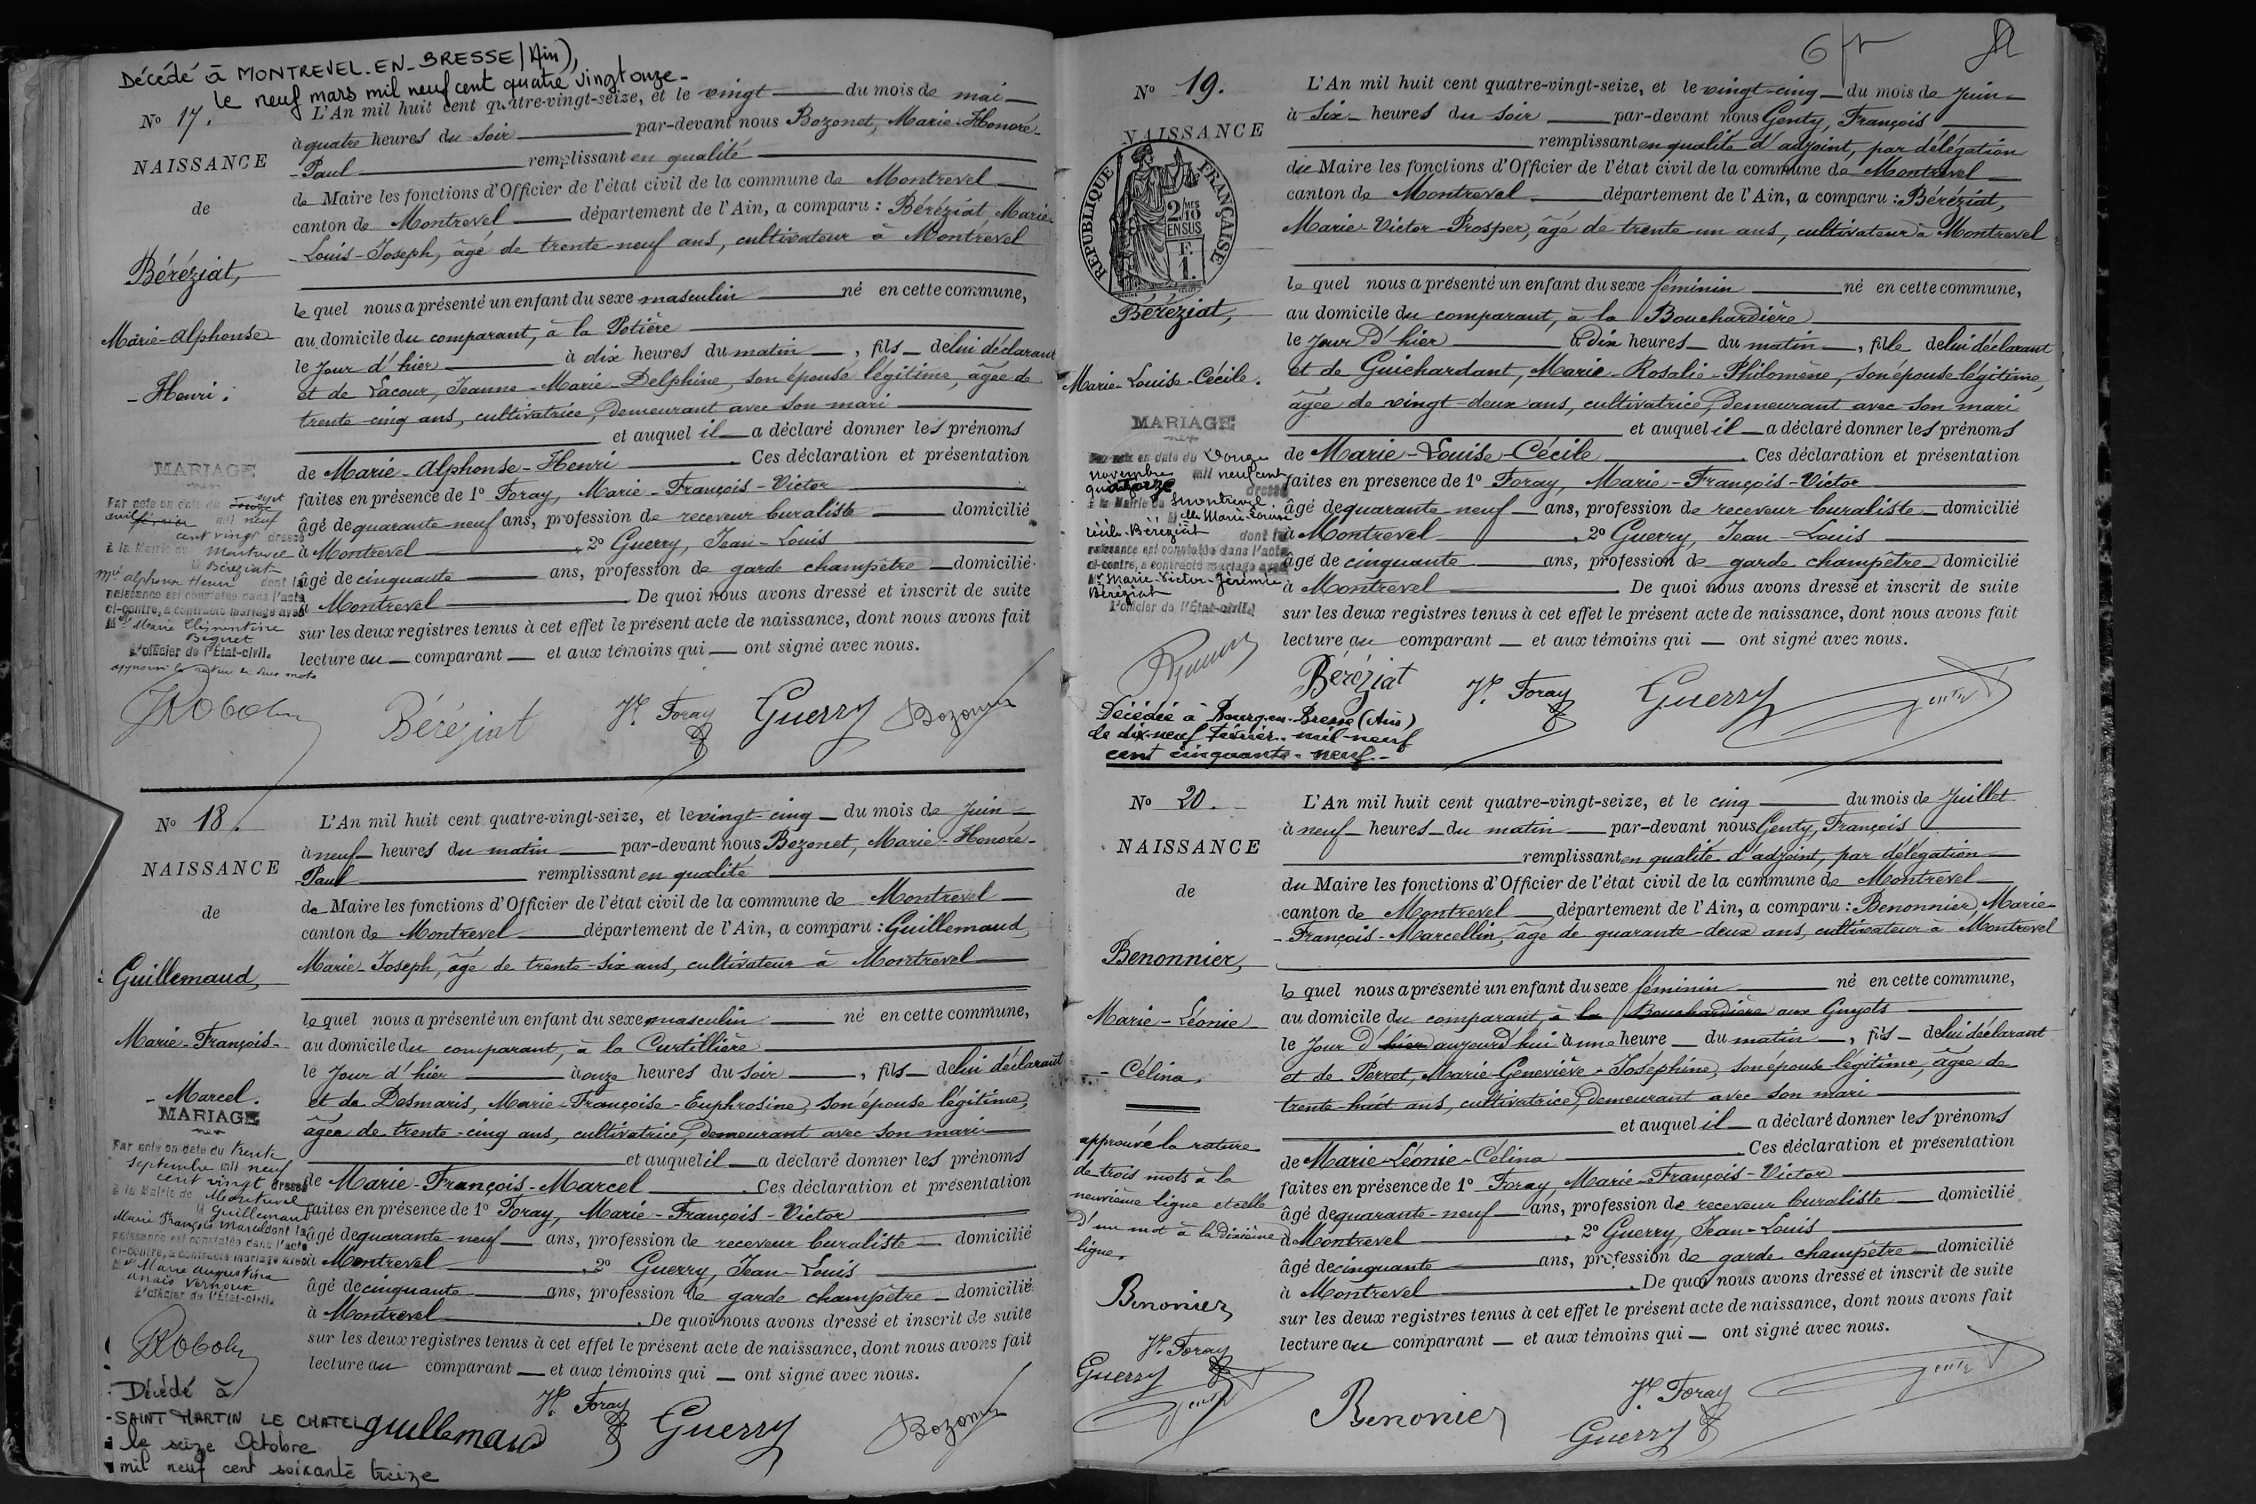 Décédé à MONTREVEL-EN-BRESSE (Ain),
le neuf mars mil neuf cent quatre vingt onze -
N° 17.
NAISSANCE
de
Béréziat,
Marie-Alphonse
- Henri.
MARIAGE
Par acte en date du sept
avril mil neuf
cent vingt dressé
à la Mairie de Montrevel
Béréziat
Mie Alphonse Henri dont la
naissance est constatée dans l'acte
ci-contre, a contracté mariage avec
Mlle Marie Clémentine
Beguet
L'officier de l'État-civil.
L'An mil huit cent quatre-vingt-seize, et le vingt du mois de mai
à quatre heures du soir par-devant nous Bozonet, Marie-Honoré-
- Paul remplissant en qualité
de Maire les fonctions d'Officier de l'état civil de la commune de Montrevel
canton de Montrevel département de l'Ain, a comparu : Béréziat, Marie-
- Louis-Joseph, âgé de trente-neuf ans, cultivateur à Montrevel
lequel nous a présenté un enfant du sexe masculin né en cette commune,
au domicile du comparant, à la Potière
le jour d'hier à dix heures du matin, fils de lui déclarant
et de Lacour, Jeanne-Marie-Delphine, son épouse légitime, âgée de
trente-cinq ans, cultivatrice, demeurant avec son mari
et auquel il a déclaré donner les prénoms
de Marie-Alphonse-Henri. Ces déclaration et présentation
faites en présence de 1° Foray, Marie-François-Victor
âgé de quarante-neuf ans, profession de receveur buraliste domicilié
à Montrevel, 2° Guerry, Jean-Louis
âgé de cinquante ans, profession de garde champêtre domicilié
à Montrevel. De quoi nous avons dressé et inscrit de suite
sur les deux registres tenus à cet effet le présent acte de naissance, dont nous avons fait
lecture au comparant et aux témoins qui ont signé avec nous.
Béréziat Vr Foray Guerry Bozonet
N° 18.
NAISSANCE
de
Guillemaud,
Marie-François-
- Marcel.
MARIAGE
Par acte en date du trente
septembre mil neuf
cent vingt dressé
à la Mairie de Montrevel
Guillemaud
Marie François Marcel dont la
naissance est constatée dans l'acte
ci-contre, a contracté mariage avec
Mlle Marie Augustine
Anais Vernoux
L'officier de l'État-civil.
Décédé à
SAINT MARTIN LE CHATEL
le seize Octobre
mil neuf cent soixante treize
L'An mil huit cent quatre-vingt-seize, et le vingt-cinq du mois de Juin
à neuf heures du matin par-devant nous Bozonet, Marie-Honoré-
Paul remplissant en qualité
de Maire les fonctions d'Officier de l'état civil de la commune de Montrevel
canton de Montrevel département de l'Ain, a comparu : Guillemaud,
Marie-Joseph, âgé de trente-six ans, cultivateur à Montrevel
lequel nous a présenté un enfant du sexe masculin né en cette commune,
au domicile du comparant, à la Curtillière
le jour d'hier à onze heures du soir, fils de lui déclarant
et de Desmaris, Marie-Françoise-Euphrosine, son épouse légitime,
âgée de trente-cinq ans, cultivatrice, demeurant avec son mari
et auquel il a déclaré donner les prénoms
de Marie-François-Marcel. Ces déclaration et présentation
faites en présence de 1° Foray, Marie-François-Victor
âgé de quarante-neuf ans, profession de receveur buraliste domicilié
à Montrevel, 2° Guerry, Jean-Louis
âgé de cinquante ans, profession de garde champêtre domicilié
à Montrevel. De quoi nous avons dressé et inscrit de suite
sur les deux registres tenus à cet effet le présent acte de naissance, dont nous avons fait
lecture au comparant et aux témoins qui ont signé avec nous.
guillemaud Vr Foray Guerry Bozonet
N° 19.
NAISSANCE
RÉPUBLIQUE FRANÇAISE
2/10 EN SUS
F.
1.
Béréziat,
Marie-Louise-Cécile.
MARIAGE
Par acte en date du Douze
novembre mil neuf cent
quatorze dressé
à la Mairie de Montrevel
Mlle Marie-Louise
Cécile-Béréziat dont la
naissance est constatée dans l'acte
ci-contre, a contracté mariage avec
Mr Marie-Victor-Jérémie
Béréziat
L'officier de l'État-civil
Décédée à Bourg-en-Bresse (Ain)
le dix-neuf Février mil-neuf
cent cinquante-neuf.-
L'An mil huit cent quatre-vingt-seize, et le vingt-cinq du mois de Juin
à six heures du soir par-devant nous Genty, François
remplissant en qualité d'adjoint, par délégation
du Maire les fonctions d'Officier de l'état civil de la commune de Montrevel
canton de Montrevel département de l'Ain, a comparu : Béréziat,
Marie-Victor-Prosper, âgé de trente un ans, cultivateur à Montrevel
lequel nous a présenté un enfant du sexe féminin né en cette commune,
au domicile du comparant, à la Bouchardière
le jour d'hier à dix heures du matin, fille de lui déclarant
et de Guichardant, Marie-Rosalie-Philomène, son épouse légitime,
âgée de vingt-deux ans, cultivatrice, demeurant avec son mari
et auquel il a déclaré donner les prénoms
de Marie-Louise-Cécile. Ces déclaration et présentation
faites en présence de 1° Foray, Marie-François-Victor
âgé de quarante neuf ans, profession de receveur buraliste domicilié
à Montrevel, 2° Guerry, Jean-Louis
âgé de cinquante ans, profession de garde champêtre domicilié
à Montrevel. De quoi nous avons dressé et inscrit de suite
sur les deux registres tenus à cet effet le présent acte de naissance, dont nous avons fait
lecture au comparant et aux témoins qui ont signé avec nous.
Béréziat Vr Foray Guerry Genty
N° 20.
NAISSANCE
de
Benonnier,
Marie-Léonie
- Célina.
approuvé la rature
de trois mots à la
neuvième ligne et celle
d'un mot à la dixième
ligne.
Benonier
Vr Foray
Guerry
Genty
L'An mil huit cent quatre-vingt-seize, et le cinq du mois de Juillet
à neuf heures du matin par-devant nous Genty, François
remplissant en qualité d'adjoint, par délégation
du Maire les fonctions d'Officier de l'état civil de la commune de Montrevel
canton de Montrevel département de l'Ain, a comparu : Benonnier, Marie-
- François-Marcellin, âgé de quarante-deux ans, cultivateur à Montrevel
lequel nous a présenté un enfant du sexe féminin né en cette commune,
au domicile du comparant à la Bouchardière aux Guyots
le jour d'hier aujourd'hui à une heure du matin, fils de lui déclarant
et de Perret, Marie-Geneviève-Joséphine, son épouse légitime, âgée de
trente-huit ans, cultivatrice, demeurant avec son mari
et auquel il a déclaré donner les prénoms
de Marie-Léonie-Célina. Ces déclaration et présentation
faites en présence de 1° Foray, Marie-François-Victor
âgé de quarante-neuf ans, profession de receveur buraliste domicilié
à Montrevel, 2° Guerry, Jean-Louis
âgé de cinquante ans, profession de garde champêtre domicilié
à Montrevel. De quoi nous avons dressé et inscrit de suite
sur les deux registres tenus à cet effet le présent acte de naissance, dont nous avons fait
lecture au comparant et aux témoins qui ont signé avec nous.
Benonier Vr Foray Genty
Guerry